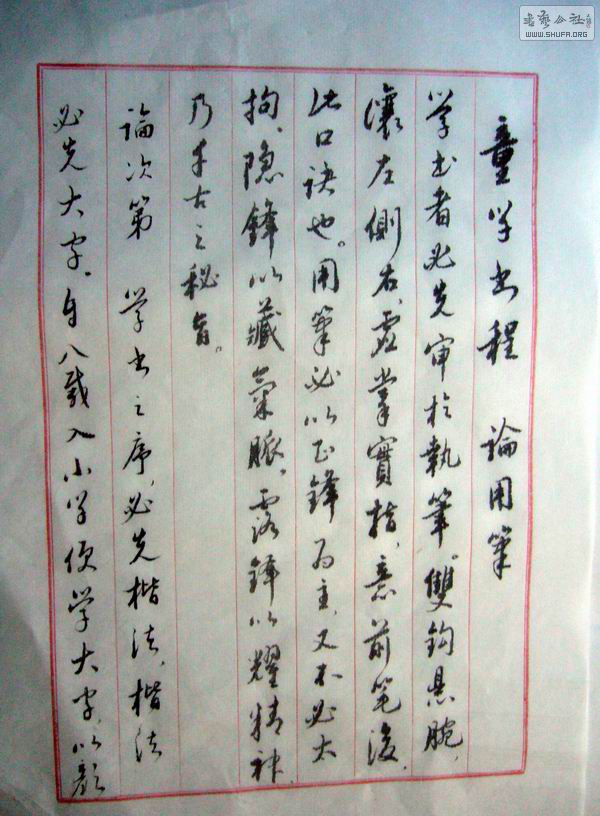 童学书程 論用筆
学书者必先审於執筆。雙鈎悬腕，
讓左側右，虛掌實指，意前笔後，
此口訣也。用筆必以正鋒为主，又不必太
拘，隐鋒以藏氣脈，露鋒以耀精神，
乃千古之秘旨。
論次第 学书之序，必先楷法，楷法
必先大字。自八歲入小学便学大字，以颜
書藝公社
WWW.SHUFA.ORG